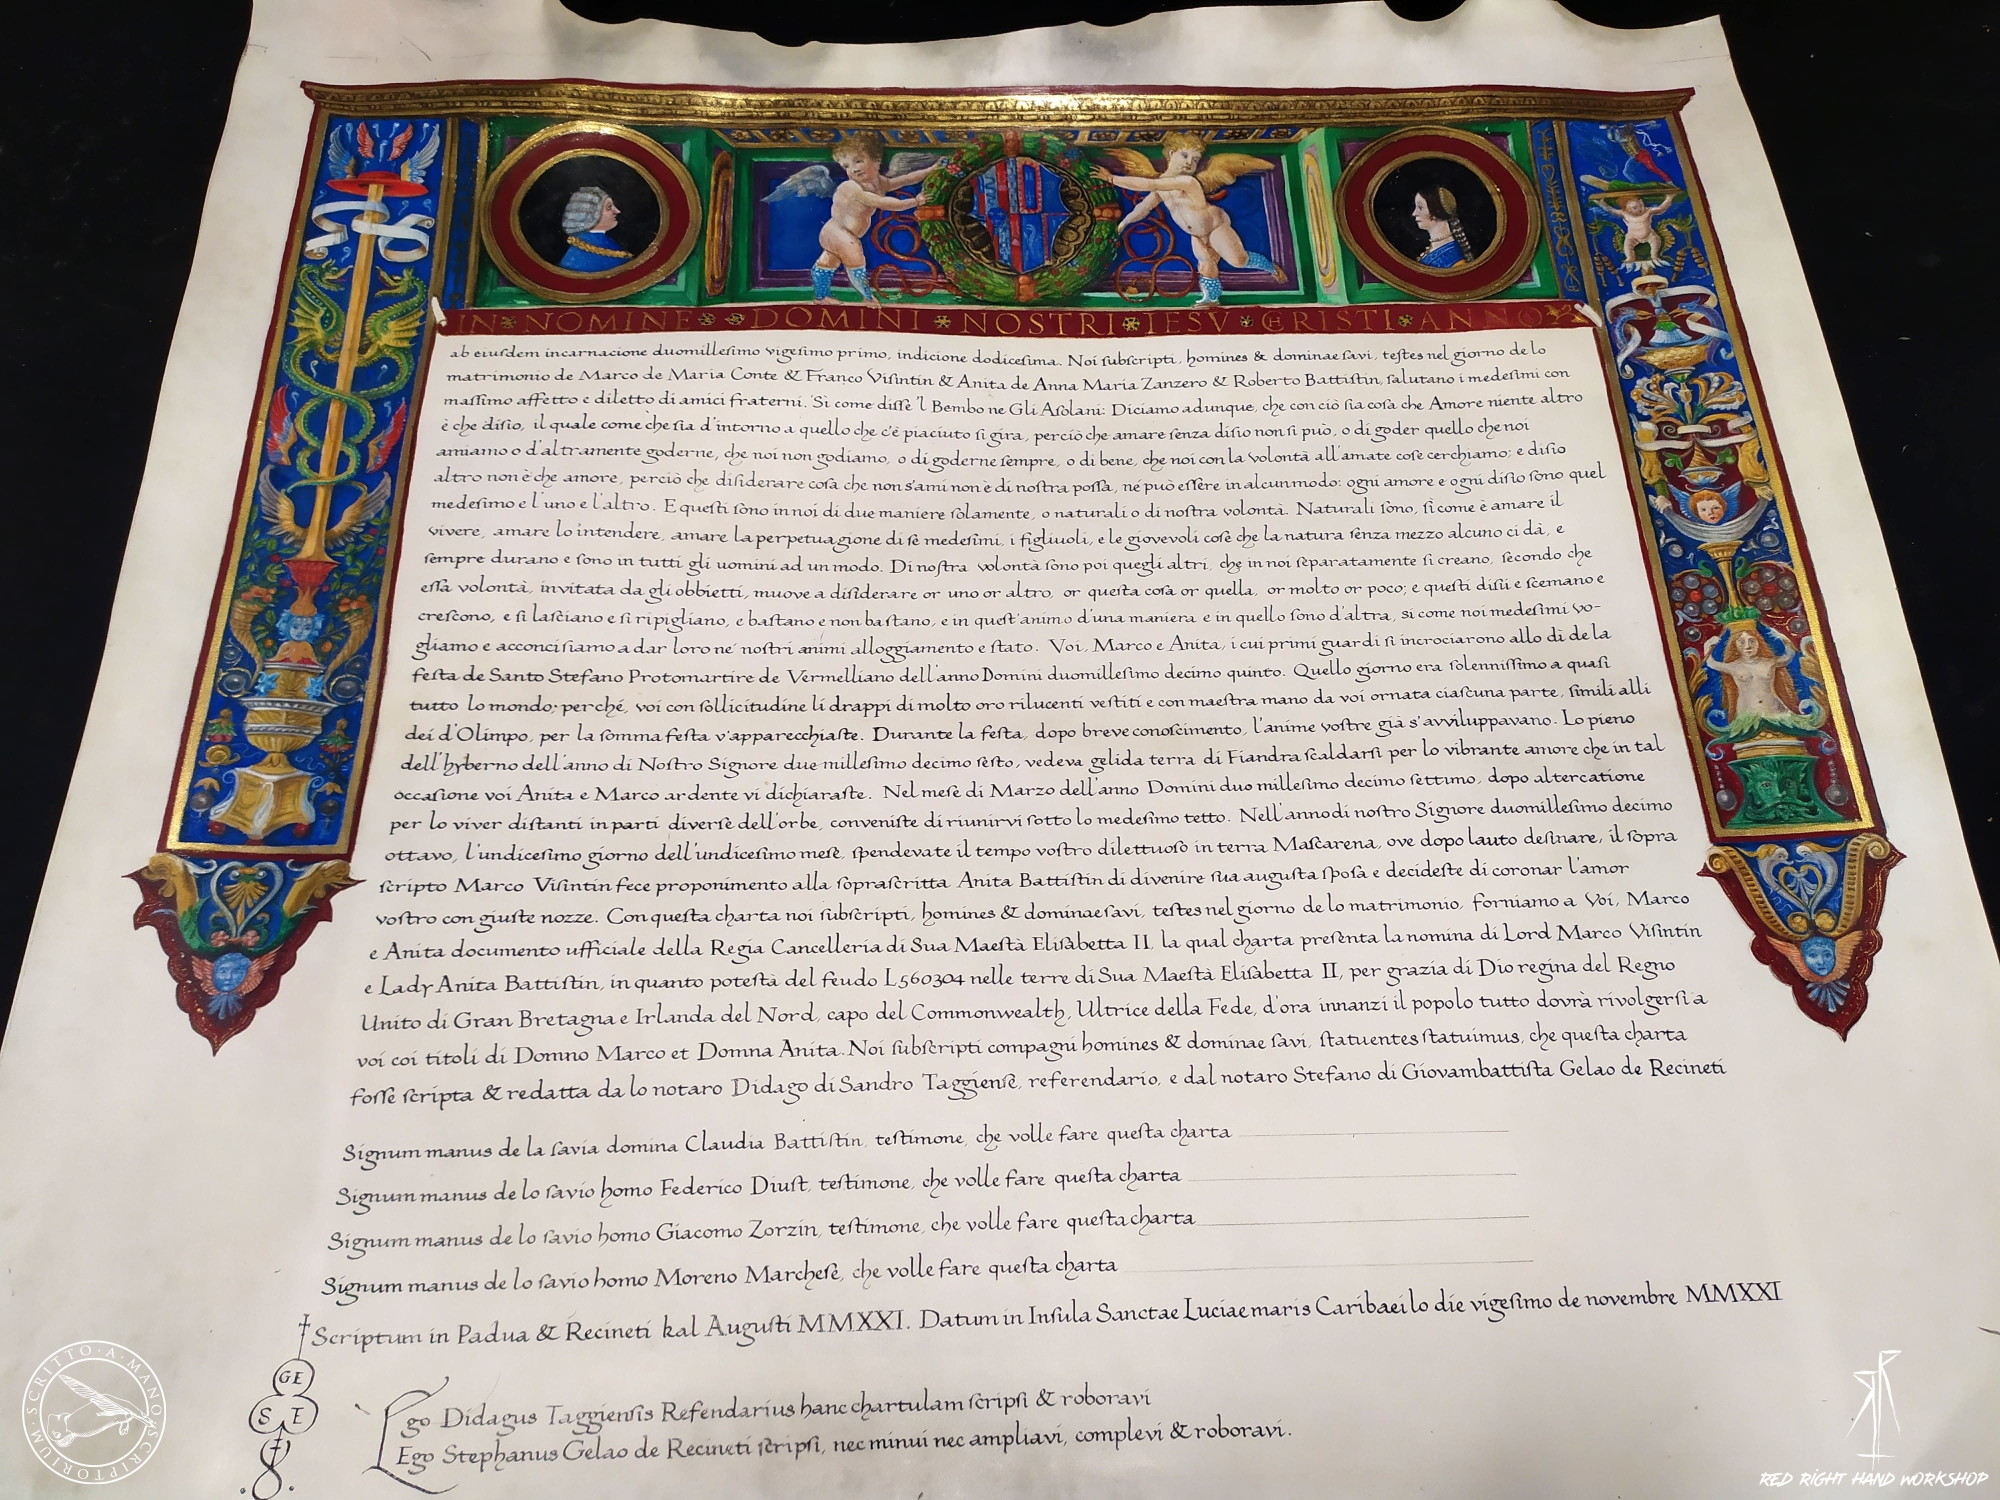 IN NOMINE DOMINI NOSTRI IESV CRISTI ANNO
ab eiuſdem incarnacione duomilleſimo vigeſimo primo, indicione dodiceſima. Noi ſubſcripti, homines & dominae ſavi, teſtes nel giorno de lo
matrimonio de Marco de Maria Conte & Franco Viſintin & Anita de Anna Maria Zanzero & Roberto Battiſtin, ſalutano i medeſimi con
maſſimo affetto e diletto di amici fraterni. Sì come diſſe 'l Bembo ne Gli Aſolani: Diciamo adunque, che con ciò ſia coſa che Amore niente altro
è che diſio, il quale come che ſia d'intorno a quello che c'è piaciuto ſi gira, perciò che amare ſenza diſio non ſi può, o di goder quello che noi
amiamo o d'altramente goderne, che noi non godiamo, o di goderne ſempre, o di bene, che noi con la volontà all'amate coſe cerchiamo; e diſio
altro non è che amore, perciò che diſiderare coſa che non s'ami non è di noſtra poſſa, né può eſſere in alcun modo: ogni amore e ogni diſio ſono quel
medeſimo e l'uno e l'altro. E queſti ſono in noi di due maniere ſolamente, o naturali o di noſtra volontà. Naturali ſono, ſì come è amare il
vivere, amare lo intendere, amare la perpetuagione di ſe medeſimi, i figliuoli, e le giovevoli coſe che la natura ſenza mezzo alcuno ci dà, e
ſempre durano e ſono in tutti gli uomini ad un modo. Di noſtra volontà ſono poi quegli altri, che in noi ſeparatamente ſi creano, ſecondo che
eſſa volontà, invitata da gli obbietti, muove a diſiderare or uno or altro, or queſta coſa or quella, or molto or poco; e queſti diſii e ſcemano e
creſcono, e ſi laſciano e ſi ripigliano, e baſtano e non baſtano, e in queſt'animo d'una maniera e in quello ſono d'altra, sì come noi medeſimi vo-
gliamo e acconci ſiamo a dar loro ne' noſtri animi alloggiamento e ſtato. Voi, Marco e Anita, i cui primi guardi ſi incrociarono allo dì de la
feſta de Santo Stefano Protomartire de Vermelliano dell'anno Domini duomilleſimo decimo quinto. Quello giorno era ſolenniſſimo a quaſi
tutto lo mondo; perché, voi con ſollicitudine li drappi di molto oro rilucenti veſtiti e con maeſtra mano da voi ornata ciaſcuna parte, ſimili alli
dei d'Olimpo, per la ſomma feſta v'apparecchiaſte. Durante la feſta, dopo breve conoſcimento, l'anime voſtre già s'avviluppavano. Lo pieno
dell'hyberno dell'anno di Noſtro Signore due milleſimo decimo ſeſto, vedeva gelida terra di Fiandra ſcaldarſi per lo vibrante amore che in tal
occaſione voi Anita e Marco ardente vi dichiaraſte. Nel meſe di Marzo dell'anno Domini duo milleſimo decimo ſettimo, dopo altercatione
per lo viver diſtanti in parti diverſe dell'orbe, conveniſte di riunirvi ſotto lo medeſimo tetto. Nell'anno di noſtro Signore duomilleſimo decimo
ottavo, l'undiceſimo giorno dell'undiceſimo meſe, ſpendevate il tempo voſtro dilettuoſo in terra Maſcarena, ove dopo lauto deſinare, il ſopra
ſcripto Marco Viſintin fece proponimento alla ſopraſcritta Anita Battiſtin di divenire ſua auguſta ſpoſa e decideſte di coronar l'amor
voſtro con giuſte nozze. Con queſta charta noi ſubſcripti, homines & dominae ſavi, teſtes nel giorno de lo matrimonio, forniamo a Voi, Marco
e Anita documento ufficiale della Regia Cancelleria di Sua Maeſtà Eliſabetta II, la qual charta preſenta la nomina di Lord Marco Viſintin
e Lady Anita Battiſtin, in quanto poteſtà del feudo L560304 nelle terre di Sua Maeſtà Eliſabetta II, per grazia di Dio regina del Regno
Unito di Gran Bretagna e Irlanda del Nord, capo del Commonwealth, Ultrice della Fede, d'ora innanzi il popolo tutto dovrà rivolgerſi a
voi coi titoli di Domno Marco et Domna Anita. Noi ſubſcripti compagni homines & dominae ſavi, ſtatuentes ſtatuimus, che queſta charta
foſſe ſcripta & redatta da lo notaro Didago di Sandro Taggienſe, referendario, e dal notaro Stefano di Giovambattiſta Gelao de Recineti
Signum manus de la ſavia domina Claudia Battiſtin, teſtimone, che volle fare queſta charta
Signum manus de lo ſavio homo Federico Diuſt, teſtimone, che volle fare queſta charta
Signum manus de lo ſavio homo Giacomo Zorzin, teſtimone, che volle fare queſta charta
Signum manus de lo ſavio homo Moreno Marcheſe, che volle fare queſta charta
Scriptum in Padua & Recineti kal Auguſti MMXXI. Datum in Inſula Sanctae Luciae maris Caribaei lo die vigeſimo de novembre MMXXI
GE
S E
Ego Didagus Taggienſis Refendarius hanc chartulam ſcripſi & roboravi
Ego Stephanus Gelao de Recineti ſcripſi, nec minui nec ampliavi, complevi & roboravi.
SCRITTO·A·MANO SCRIPTORIUM
RED RIGHT HAND WORKSHOP